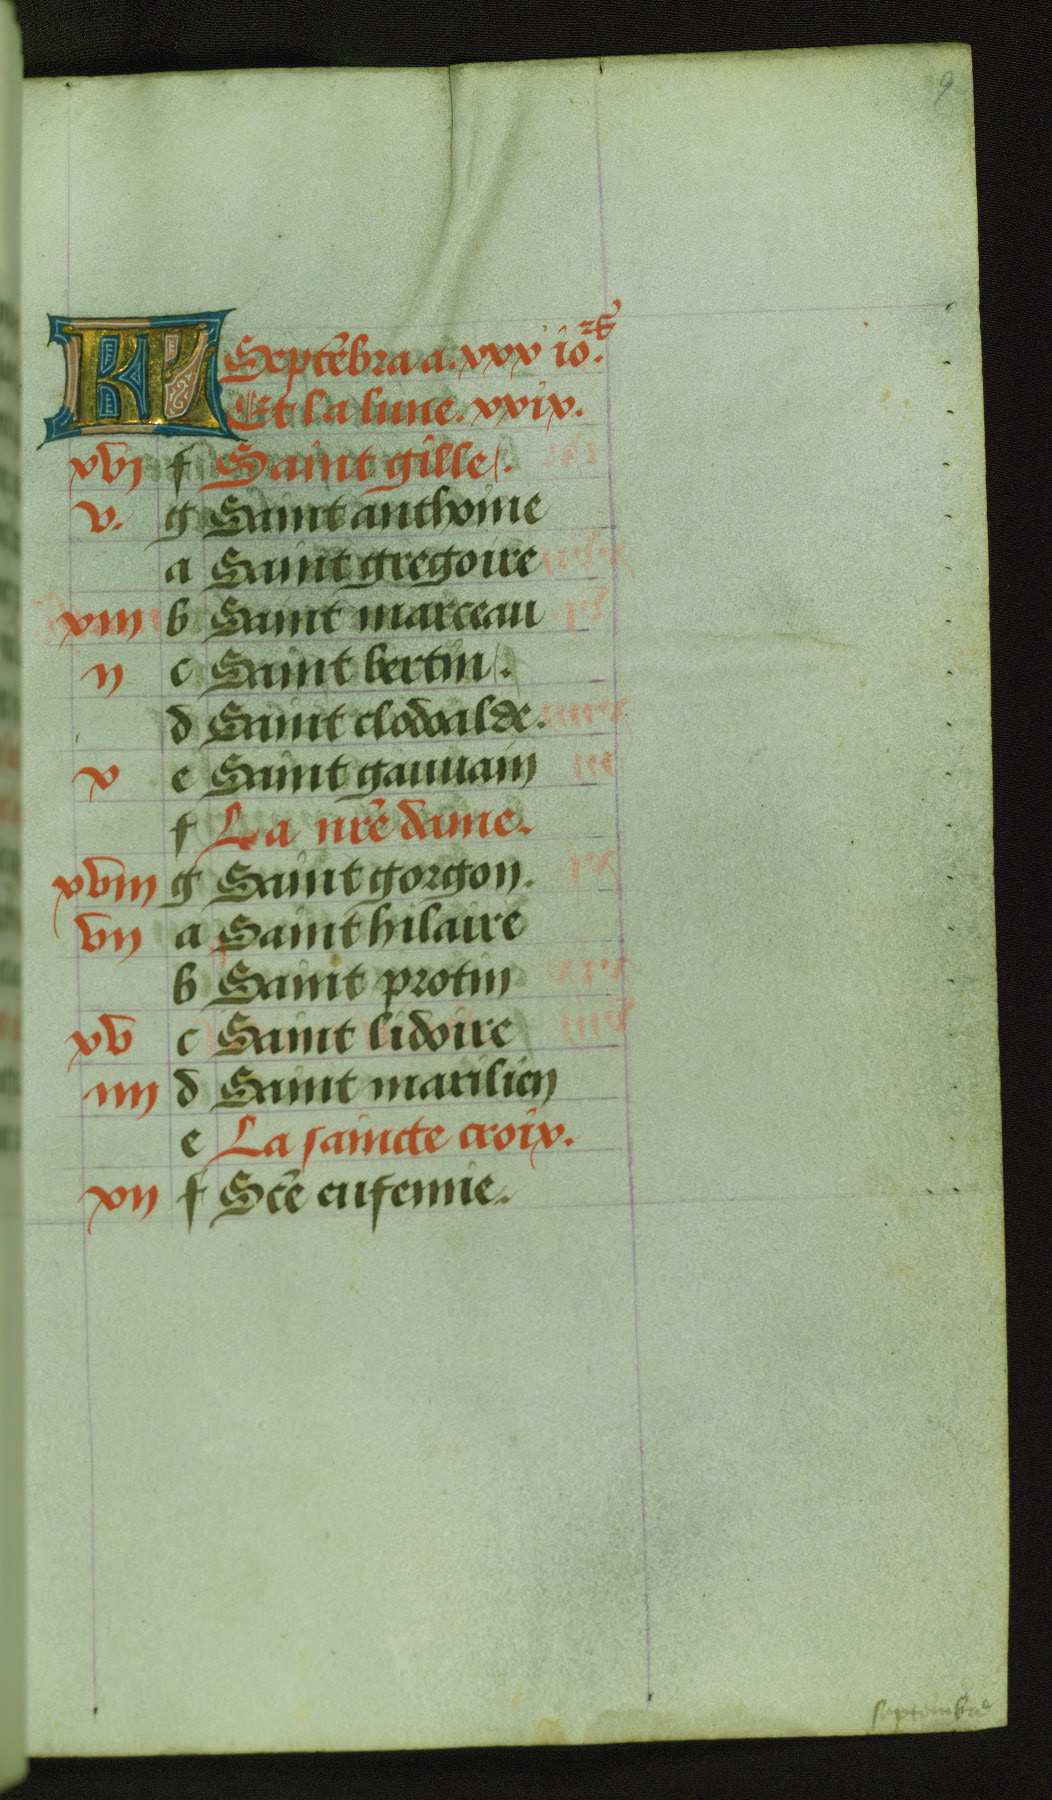 9
KL Septēbra a. xxx io.rs
Et la lune. xxix.
xvi f Saint gille.
v. g Saint anthoine
a Saint gregoire
xiii b Saint marceau
ii c Saint bertin.
d Saint clodoalde.
x e Saint gauuain
f La nrē dame.
xviii g Saint gorgon.
vii a Saint hilaire
b Saint protin
xv c Saint lidoire
iiii d Saint maxilien
e La saincte croix.
xii f Scē eufemie.
septembre